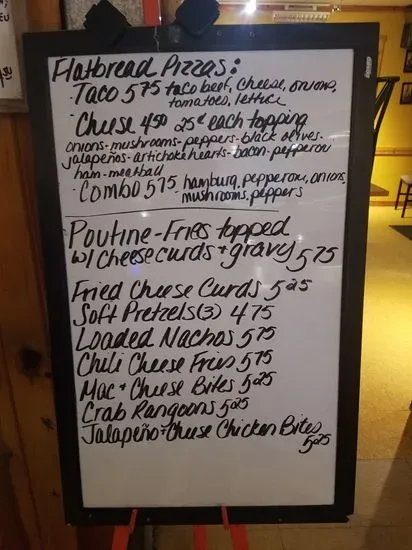 Flatbread Pizzas:
· Taco 575 taco beef, cheese, onions,
tomatoes, lettuce
· Cheese 450 25¢ each topping
onions - mushrooms - peppers - black olives -
jalapeños - artichoke hearts - bacon - pepperoni
ham - meatball
· Combo 575 hamburg, pepperoni, onions,
mushrooms, peppers
Poutine - Fries topped
w/ cheese curds + gravy 575
Fried Cheese Curds 525
Soft Pretzels (3) 475
Loaded Nachos 575
Chili Cheese Fries 575
Mac + Cheese Bites 525
Crab Rangoons 525
Jalapeño + Cheese Chicken Bites
525